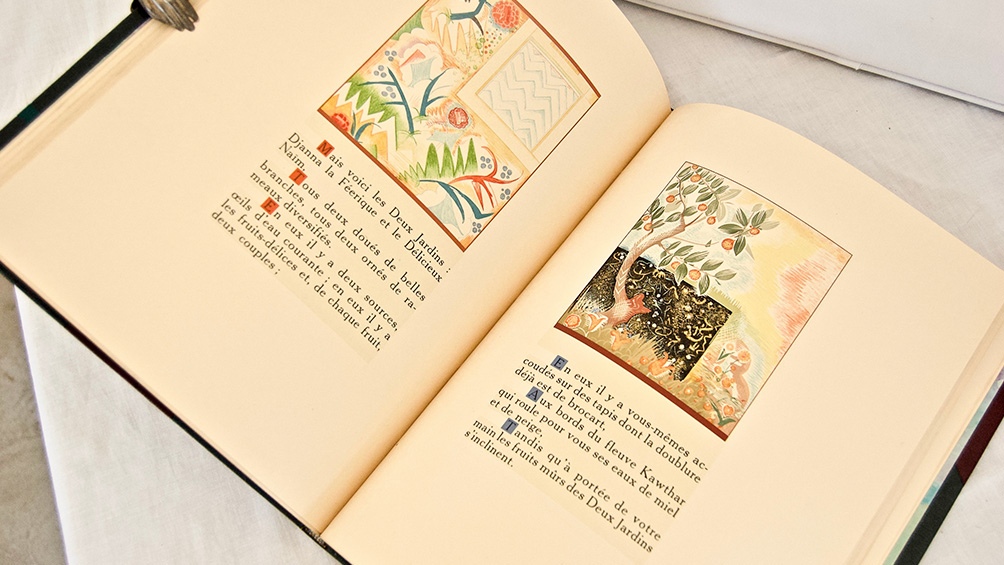 Mais voici les Deux Jardins :
Djanna la Féerique et le Délicieux
Naim,
Tous deux doués de belles
branches, tous deux ornés de ra-
meaux diversifiés,
En eux il y a deux sources,
œils d'eau courante ; en eux il y a
les fruits-délices et, de chaque fruit,
deux couples ;
En eux il y a vous-mêmes ac-
coudés sur des tapis dont la doublure
déjà est de brocart,
Aux bords du fleuve Kawthar
qui roule pour vous ses eaux de miel
et de neige,
Tandis qu'à portée de votre
main les fruits mûrs des Deux Jardins
s'inclinent.